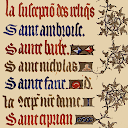 la suscepciō des reliqs
Sainte ambroise.
Sainte barbe.
Saint nicolas
Sainte fare.
la cōcepc̄ nr̄e dame
Saint ciprian